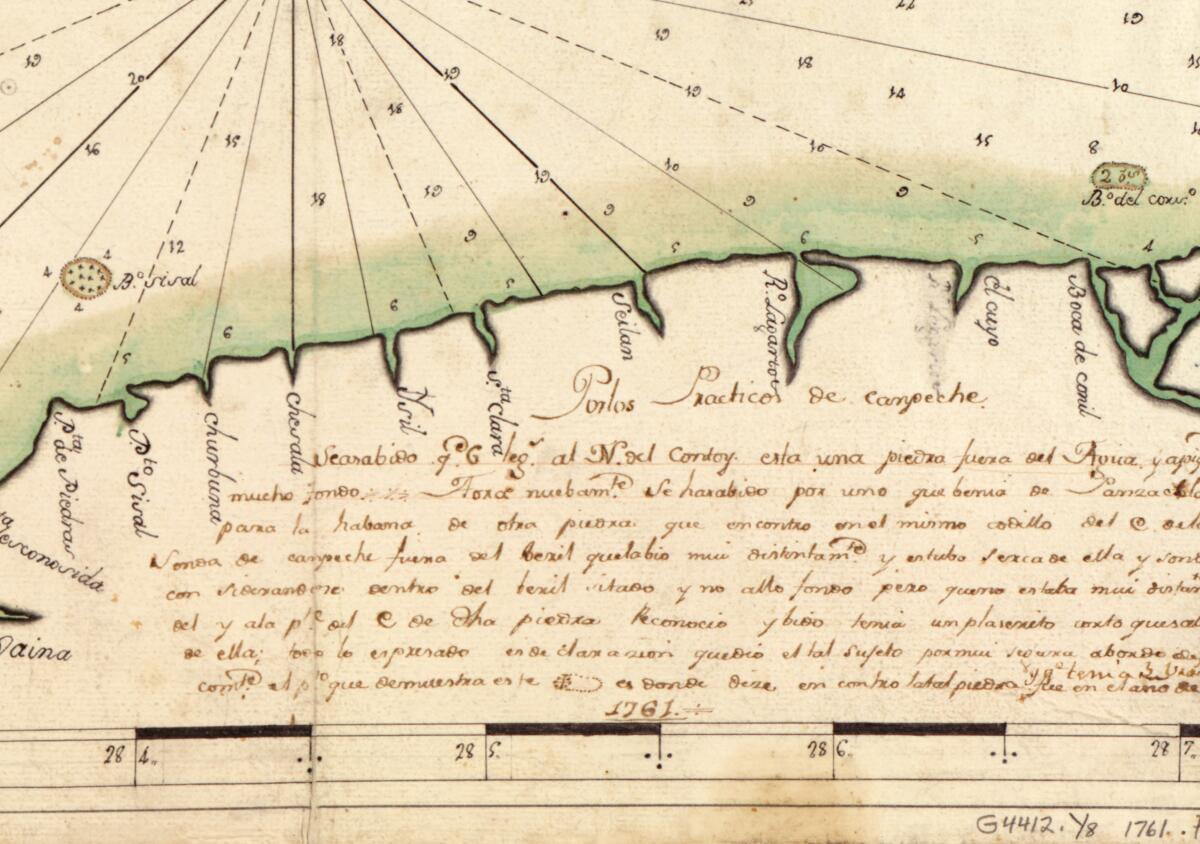 19 20 16 15 18 18 18 19 19 19 18 14 15 19 10 10 10 9 9 9 9 8
12
4 4 4
B.º sisal
2 õs
B.º del corv.º
6 5 6 5 5 6 5 4
P.ta de Piedras
P.to Sisal
churbuna
chesala
Nsil
S.ta Clara
Seilan
R.º Lagartos
El cuyo
Boca de conil
esconosida
Jaina
Porlos Practicos de canpeche.
Seasabido q.e 6 leg.s al N. del Contoy esta una piedra fuera del Agua, y
mucho fondo Aora nuebam.te Se hasabido por uno quebenia de Panza
para la habana de otra piedra que encontro en el mismo codillo del E. de
Sonda de canpeche fuera del beril quelabio mui distintam.te y estubo serca de ella y
con siderandose dentro del beril sitado y no allo fondo pero queno estaba mui
del y ala p.te del E de dha piedra Reconocio y bido tenia unplasersito corto
de ella; todo lo espresado es declarazion quedio el tal Sujeto pormui segura abordo
com.te el p.to que demuestra este es donde dize en contro latal piedra que en el año de
y q.e tenia 3
1761.
28 4. 28 5. 28 6. 28 7.
G4412.Y8 1761.